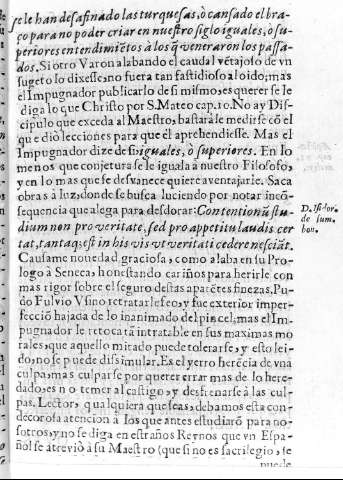 se le han desafinado las turquesas, ò cansado el bra-
ço para no poder criar en nuestro siglo iguales, ò su-
periores entendimiẽtos à los q̃ veneraron los passa-
dos. Si otro Varon alabando el caudal vẽtajoso de vn
sugeto lo dixesse, no fuera tan fastidioso al oido; mas
el Impugnador publicarlo de si mismo, es querer se le
diga lo que Christo por S. Mateo cap. 10. No ay Dis-
cipulo que exceda al Maestro, bastarà le medirse cõ el
que diò lecciones para que èl aprehendiesse. Mas el
Impugnador dize de si: iguales, ò superiores. En lo
menos que conjetura se le iguala à nuestro Filosofo,
y en lo mas que se desvanece quiere aventajarle. Saca
obras à luz, donde se busca luciendo por notar incõ-
sequencia que alega para desdorar: Contentionũ stu-
dium non pro veritate, sed pro appetitu laudis cer-
tat, tantaq; est in his vis vt veritati cedere nesciãt.
Causame novedad graciosa, como alaba en su Pro-
logo à Seneca, honestando cariños para herirle con
mas rigor sobre el seguro destas aparẽtes finezas. Pu-
do Fulvio Vsino retratarle feo, y fue exterior imper-
feccion hajada de lo inanimado del pincel; mas el Im-
pugnador le retoca tã intratable en sus maximas mo
rales, que aquello mitado puede tolerarse, y esto lei-
do, no se puede dissimular. Es el yerro herẽcia de vna
culpa; mas culparse por querer errar mas de lo here-
dado, es no temer al castigo, y desfrenarse à las cul-
pas. Lector, qualquiera que seas, debamos esta con-
decorosa atencion à los que antes estudiarõ para no-
sotros, y no se diga en estraños Reynos que vn Espa-
ñol se atreviò à su Maestro (que si no es sacrilegio, se
puede
D. Isidor.
de sum.
bon.